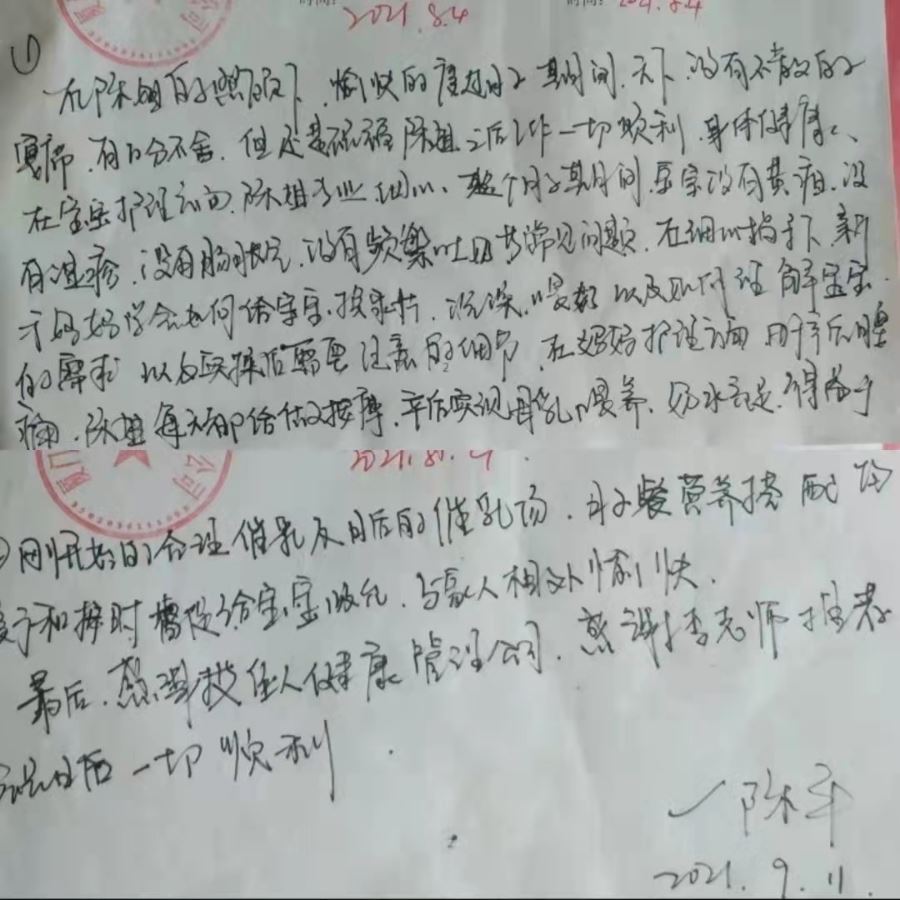 2021.8.4
①
在陈姐的照顾下,愉快的度过月子期间,天下没有不散的
宴席,有万分不舍,但还是祝福陈姐之后工作一切顺利,身体健康、
在宝宝护理方面,陈姐专业、细心、整个月子期间宝宝没有黄疸、没
有湿疹、没有肠胀气、没有频繁吐奶等常见问题,在细心指导下,新
手妈妈学会如何给宝宝换尿片、洗澡、喂奶以及如何理解宝宝
的需求以及后需要注意的细节,在妈妈护理方面,由于产后腰
痛,陈姐每天都给做按摩,产后实现母乳喂养,奶水充足,得益于
公司
2021.8.4
刚开始的合理催乳及日后的催乳汤、月子餐营养搭配
和按时督促给宝宝吸允,与家人相处愉快。
最后,感谢健康管理公司,感谢李老师推荐
日后一切顺利
2021.9.11